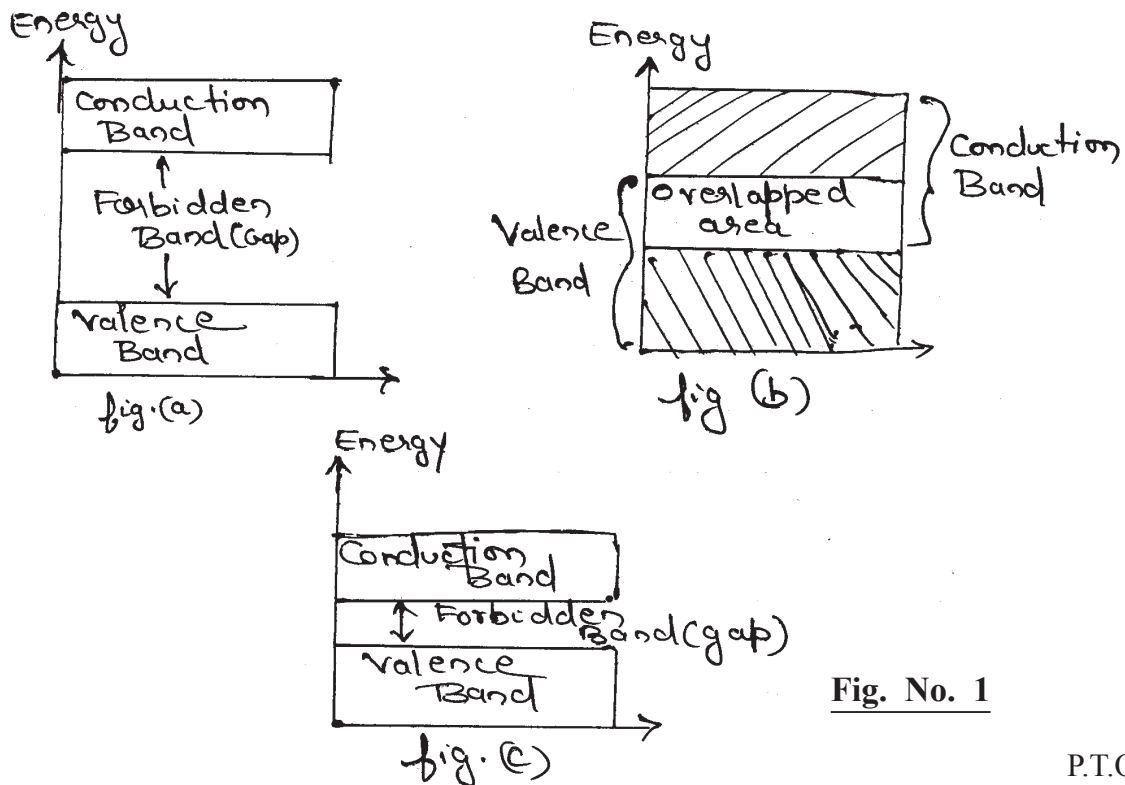 Energy
Conduction
Band
Forbidden
Band(Gap)
Valence
Band
fig.(a)
Energy
Overlapped
area
Conduction
Band
Valence
Band
fig (b)
Energy
Conduction
Band
Forbidden
Band(gap)
Valence
Band
fig.(c)
Fig. No. 1
P.T.O